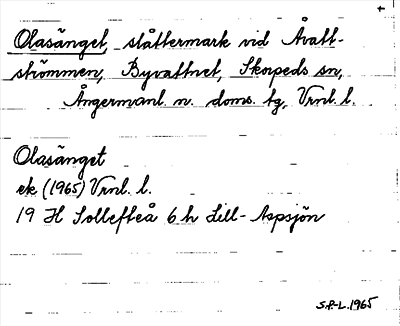 +
Olasänget, slåttermark vid Åvatt-
strömmen, Byvattnet, Skorpeds sn,
Ångermanl. n. doms. tg, Vrnl. l.
Olasänget
ek (1965) Vrnl. l.
19 H Sollefteå 6 h Lill-Aspsjön
S.P.-L. 1965